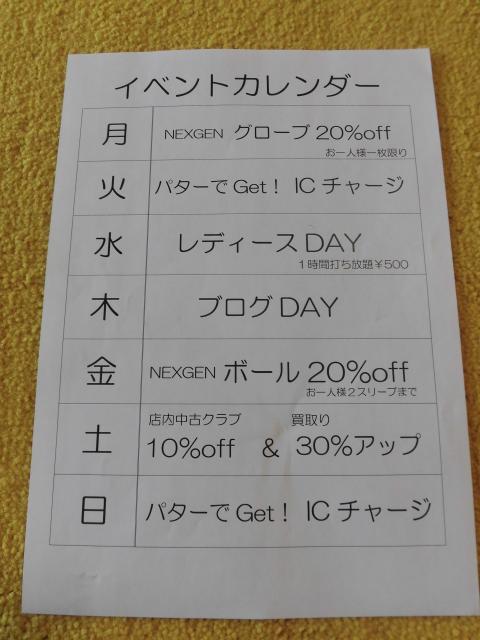 イベントカレンダー
月 NEXGEN グローブ 20%off
お一人様一枚限り
火 パターでGet! ICチャージ
水 レディースDAY
1時間打ち放題¥500
木 ブログDAY
金 NEXGEN ボール 20%off
お一人様2スリーブまで
店内中古クラブ 買取り
土 10%off & 30%アップ
日 パターでGet! ICチャージ